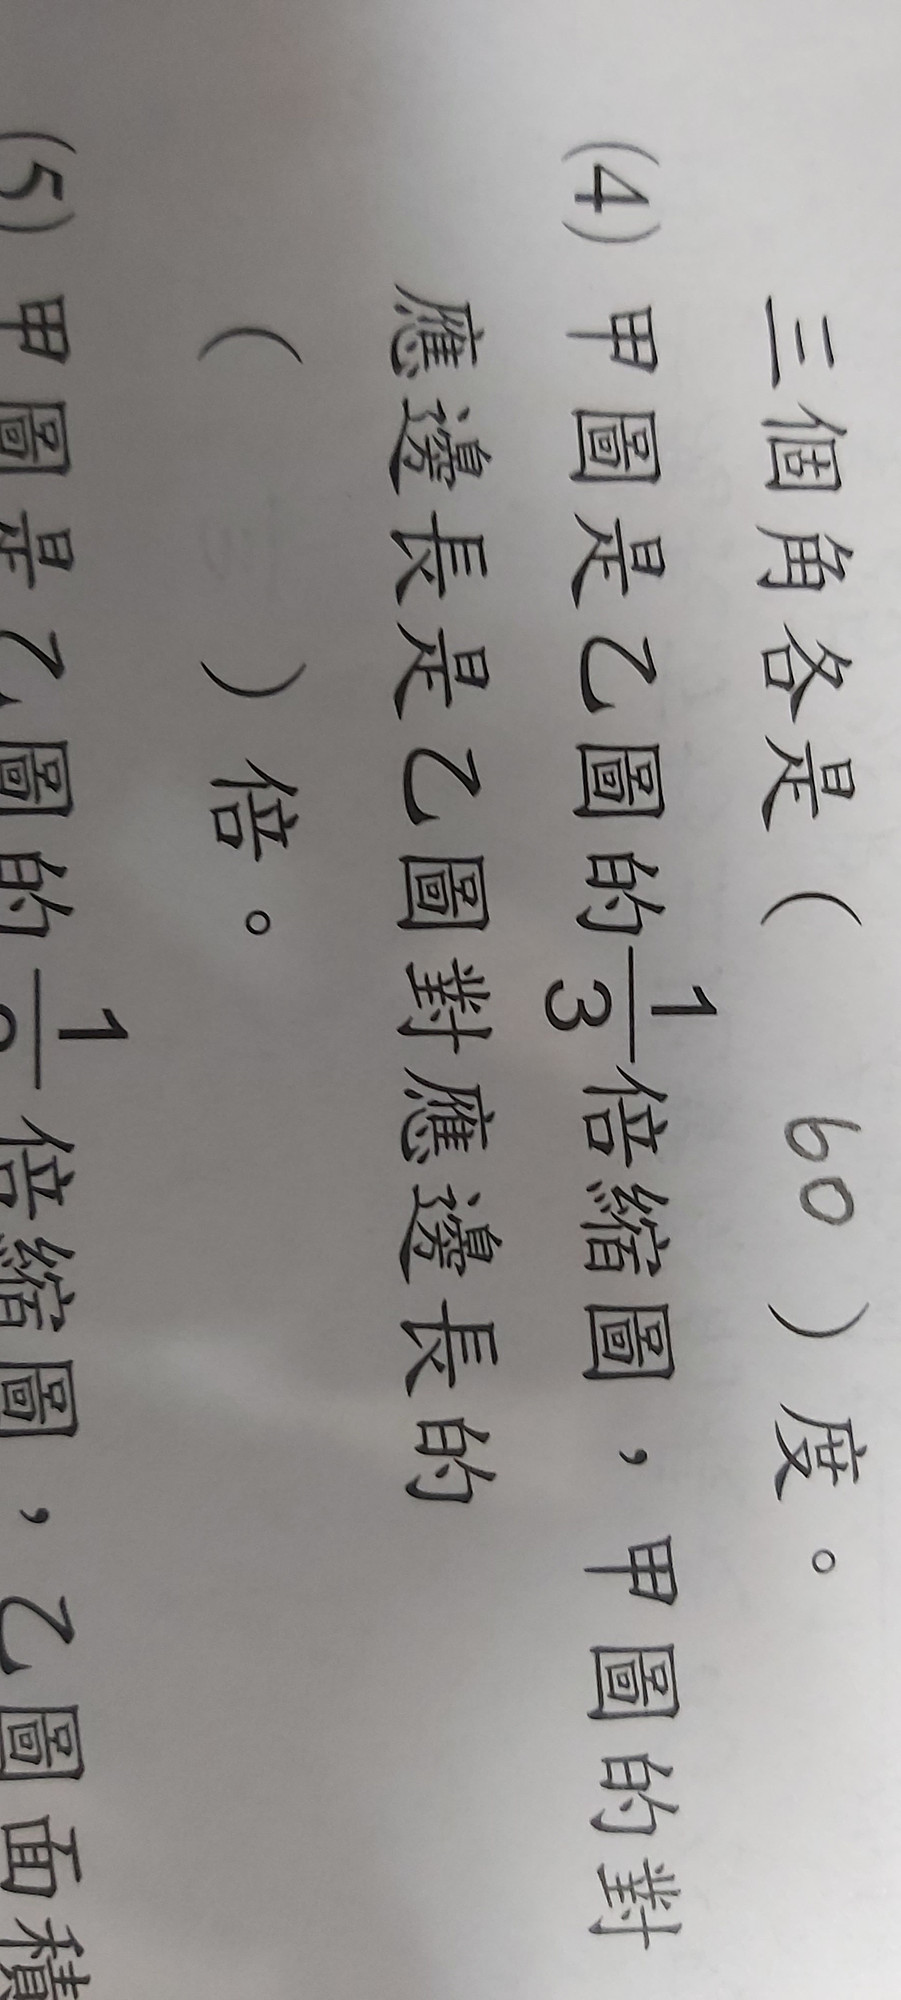 三個角各是( 60 )度。
(4) 甲圖是乙圖的1/3倍縮圖,甲圖的對
應邊長是乙圖對應邊長的
( )倍。
(5) 甲圖是乙圖的1/倍縮圖,乙圖面積